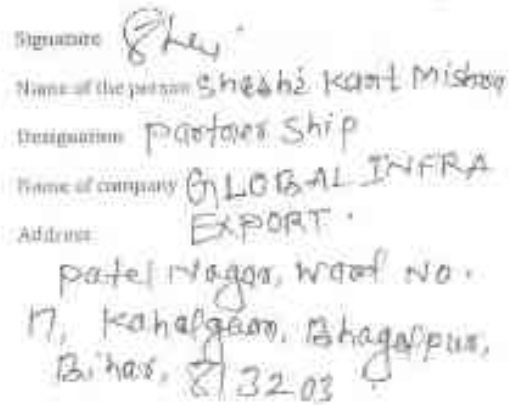 Signature Shes
Name of the person Sheshi Kant Mishra
Designation Partner Ship
Name of company GLOBAL INFRA
EXPORT.
Address
Patel Nagar, Ward No.
17, Kahalgaon, Bhagalpur,
Bihar, 813203